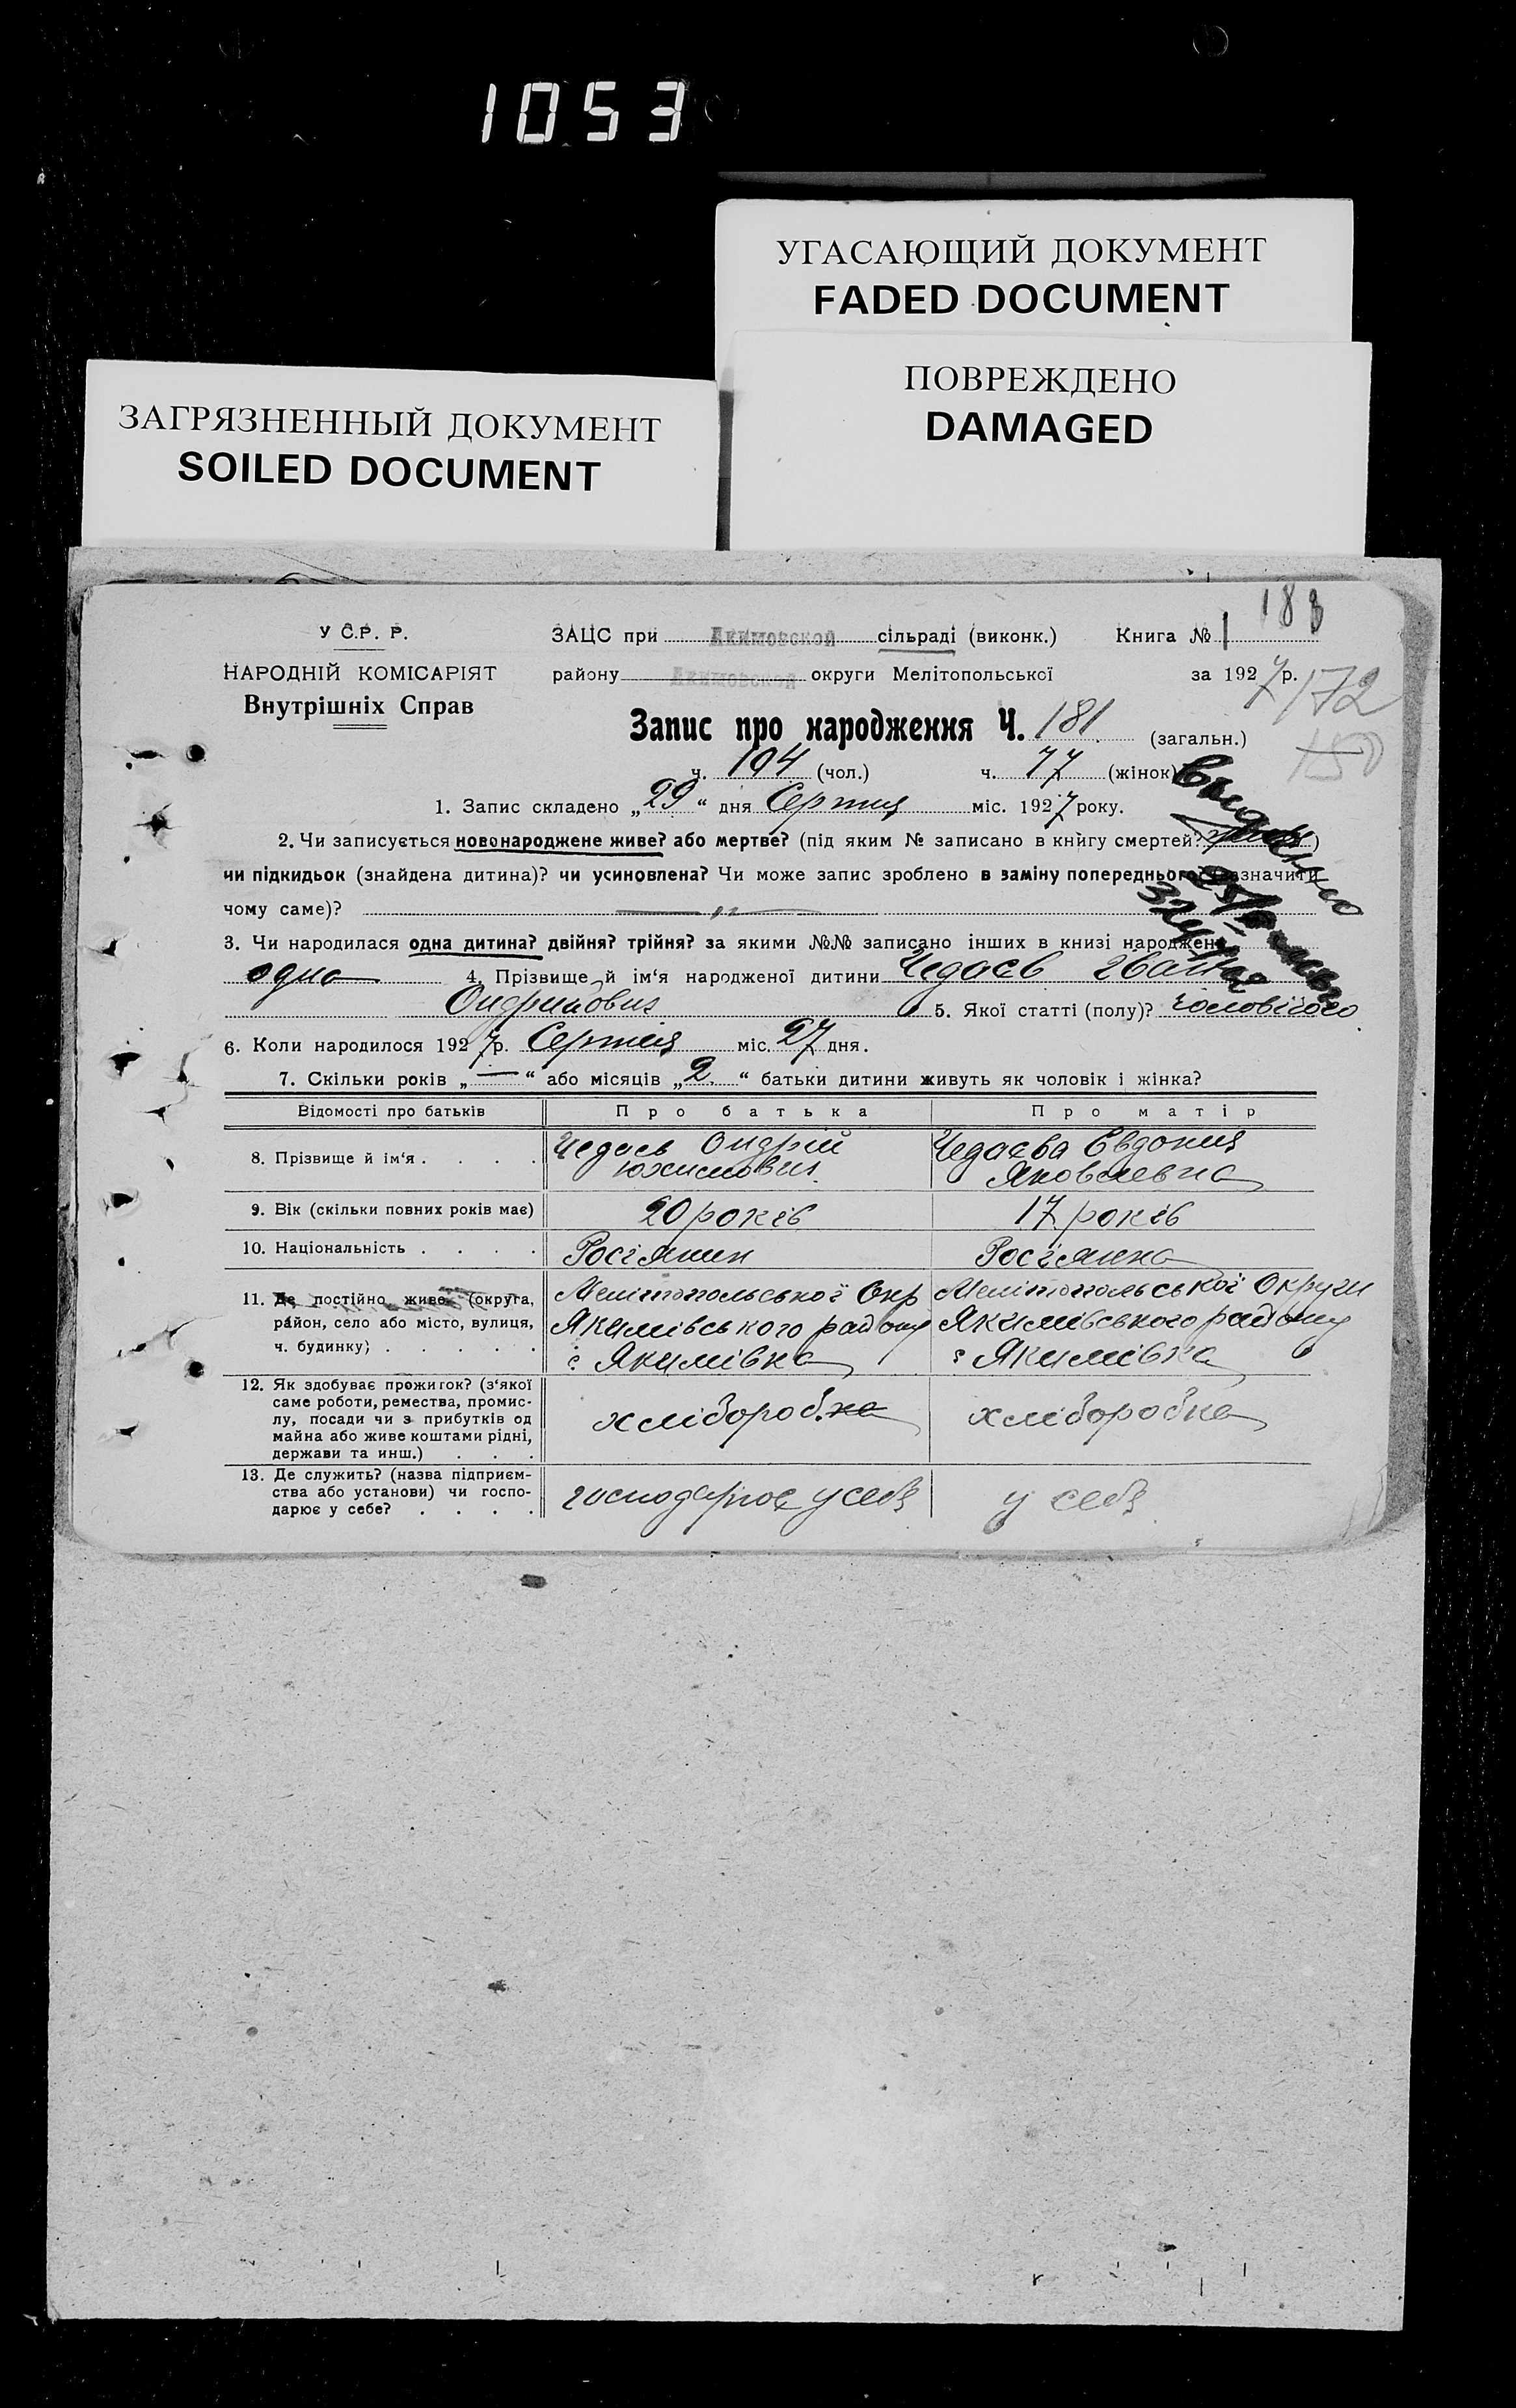 1053
УГАСАЮЩИЙ ДОКУМЕНТ
FADED DOCUMENT
ПОВРЕЖДЕНО
DAMAGED
ЗАГРЯЗНЕННЫЙ ДОКУМЕНТ
SOILED DOCUMENT
183
У С.Р. Р.
НАРОДНІЙ КОМІСАРІЯТ
Внутрішніх Справ
ЗАЦС при Акимовской сільраді (виконк.) Книга № 1
району Акимовской округи Мелітопольської за 1927 р.
172
150
Запис про народження Ч. 181 (загальн.)
ч. 104 (чол.) ч. 77 (жінок)
1. Запис складено „29“ дня Серпня міс. 1927 року.
2. Чи записується новонароджене живе? або мертве? (під яким № записано в книгу смертей? )
чи підкидьок (знайдена дитина)? чи усиновлена? Чи може запис зроблено в заміну попереднього? (зазначити
чому саме)?
3. Чи народилася одна дитина? двійня? трійня? за якими №№ записано інших в книзі народжень
одна 4. Прізвище й ім‘я народженої дитини Чедаєв Іван
Андрийович 5. Якої статті (полу)? чоловічого
6. Коли народилося 1927 р. Серпня міс. 27 дня.
7. Скільки років „—“ або місяців „2.“ батьки дитини живуть як чоловік і жінка?
Відомості про батьків Про батька Про матір
8. Прізвище й ім‘я . . . . Чедаєв Андрій Юхимович Чедаєва Євдокия Яковлевна
9. Вік (скільки повних років має) 20 років 17 років
10. Національність . . . . Росіянин Росіянка
11. Де постійно живе (округа,
район, село або місто, вулиця,
ч. будинку) . . . . .
Мелітопольської Окр
Якимівського району
с Якимівка
Мелітопольської Округи
Якимівського району
с Якимівка
12. Як здобуває прожиток? (з‘якої
саме роботи, ремества, промис-
лу, посади чи з прибутків од
майна або живе коштами рідні,
держави та инш.) . . .
хлібороб.ка
хліборобка
13. Де служить? (назва підприєм-
ства або установи) чи госпо-
дарює у себе? . . . .
господарює у себя
у себя